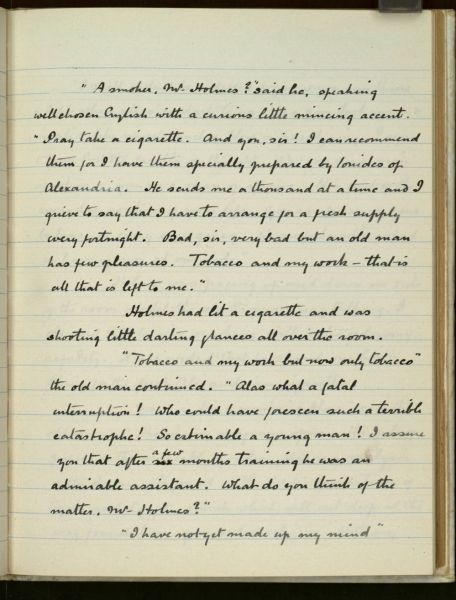 "A smoker, Mr Holmes?" said he, speaking
well chosen English with a curious little mincing accent.
"Pray take a cigarette. And you, sir! I can recommend
them for I have them specially prepared by Ionides of
Alexandria. He sends me a thousand at a time and I
grieve to say that I have to arrange for a fresh supply
every fortnight. Bad, sir, very bad but an old man
has few pleasures. Tobacco and my work – that is
all that is left to me."
Holmes had lit a cigarette and was
shooting little darting glances all over the room.
"Tobacco and my work but now only tobacco"
the old man continued. "Alas what a fatal
interruption! Who could have foreseen such a terrible
catastrophe! So estimable a young man! I assure
you that after a few months training he was an
admirable assistant. What do you think of the
matter, Mr Holmes?"
"I have not yet made up my mind"